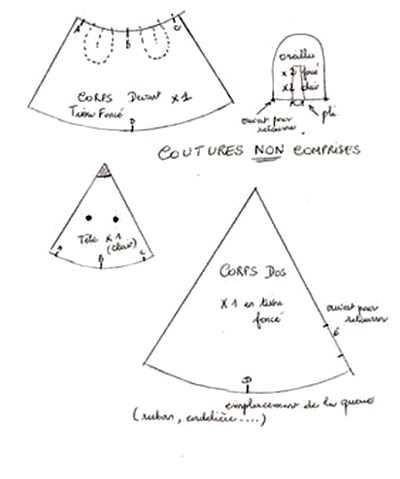 A B C
CORPS Devant x1
Tissu Foncé
D
oreilles
x2 foncé
x2 clair
ouvert pour
retourner
pli
COUTURES NON COMPRISES
Tête x1
(clair)
A B C
CORPS DOS
x1 en tissu
foncé
ouvert pour
retourner
D
emplacement de la queue
(ruban, cordelière....)